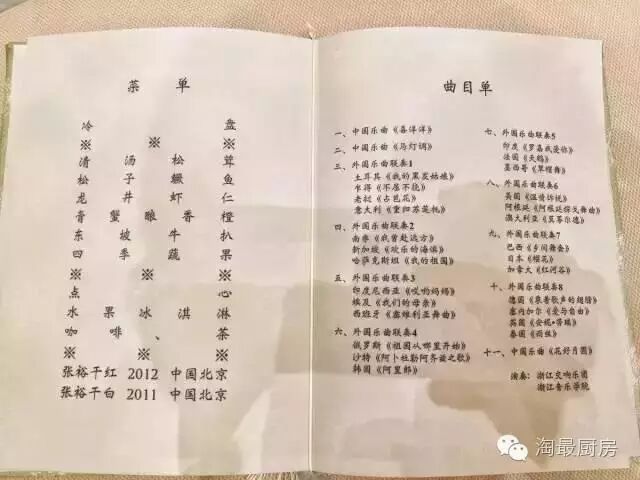 菜 单
冷 盘
※ ※
清 汤 松 茸
松 子 鳜 鱼
龙 井 虾 仁
膏 蟹 酿 香 橙
东 坡 牛 扒
四 季 蔬 果
※ ※
点 心
水 果 冰 淇 淋
咖 啡 、 茶
※ ※ ※
张裕干红 2012 中国北京
张裕干白 2011 中国北京
曲目单
一、中国乐曲《喜洋洋》
二、中国乐曲《马灯调》
三、外国乐曲联奏1
土耳其《我的黑发姑娘》
乍得《不屈不挠》
老挝《占芭花》
意大利《重归苏莲托》
四、外国乐曲联奏2
南非《我曾赴远方》
新加坡《欢乐的海滨》
哈萨克斯坦《我的祖国》
五、外国乐曲联奏3
印度尼西亚《哎哟妈妈》
埃及《我们的母亲》
西班牙《塞维利亚舞曲》
六、外国乐曲联奏4
俄罗斯《祖国从哪里开始》
沙特《阿卜杜勒阿齐兹之歌》
韩国《阿里郎》
七、外国乐曲联奏5
印度《罗嘉我爱你》
法国《天鹅》
墨西哥《草帽舞》
八、外国乐曲联奏6
美国《温情诉说》
阿根廷《阿根廷探戈舞曲》
澳大利亚《莫蒂尔德》
九、外国乐曲联奏7
巴西《乡间舞奏》
日本《樱花》
加拿大《红河谷》
十、外国乐曲联奏8
德国《乘着歌声的翅膀》
塞内加尔《爱与自由》
英国《安妮·劳瑞》
泰国《雨丝》
十一、中国乐曲《花好月圆》
演奏:浙江交响乐团
浙江音乐学院
淘最厨房